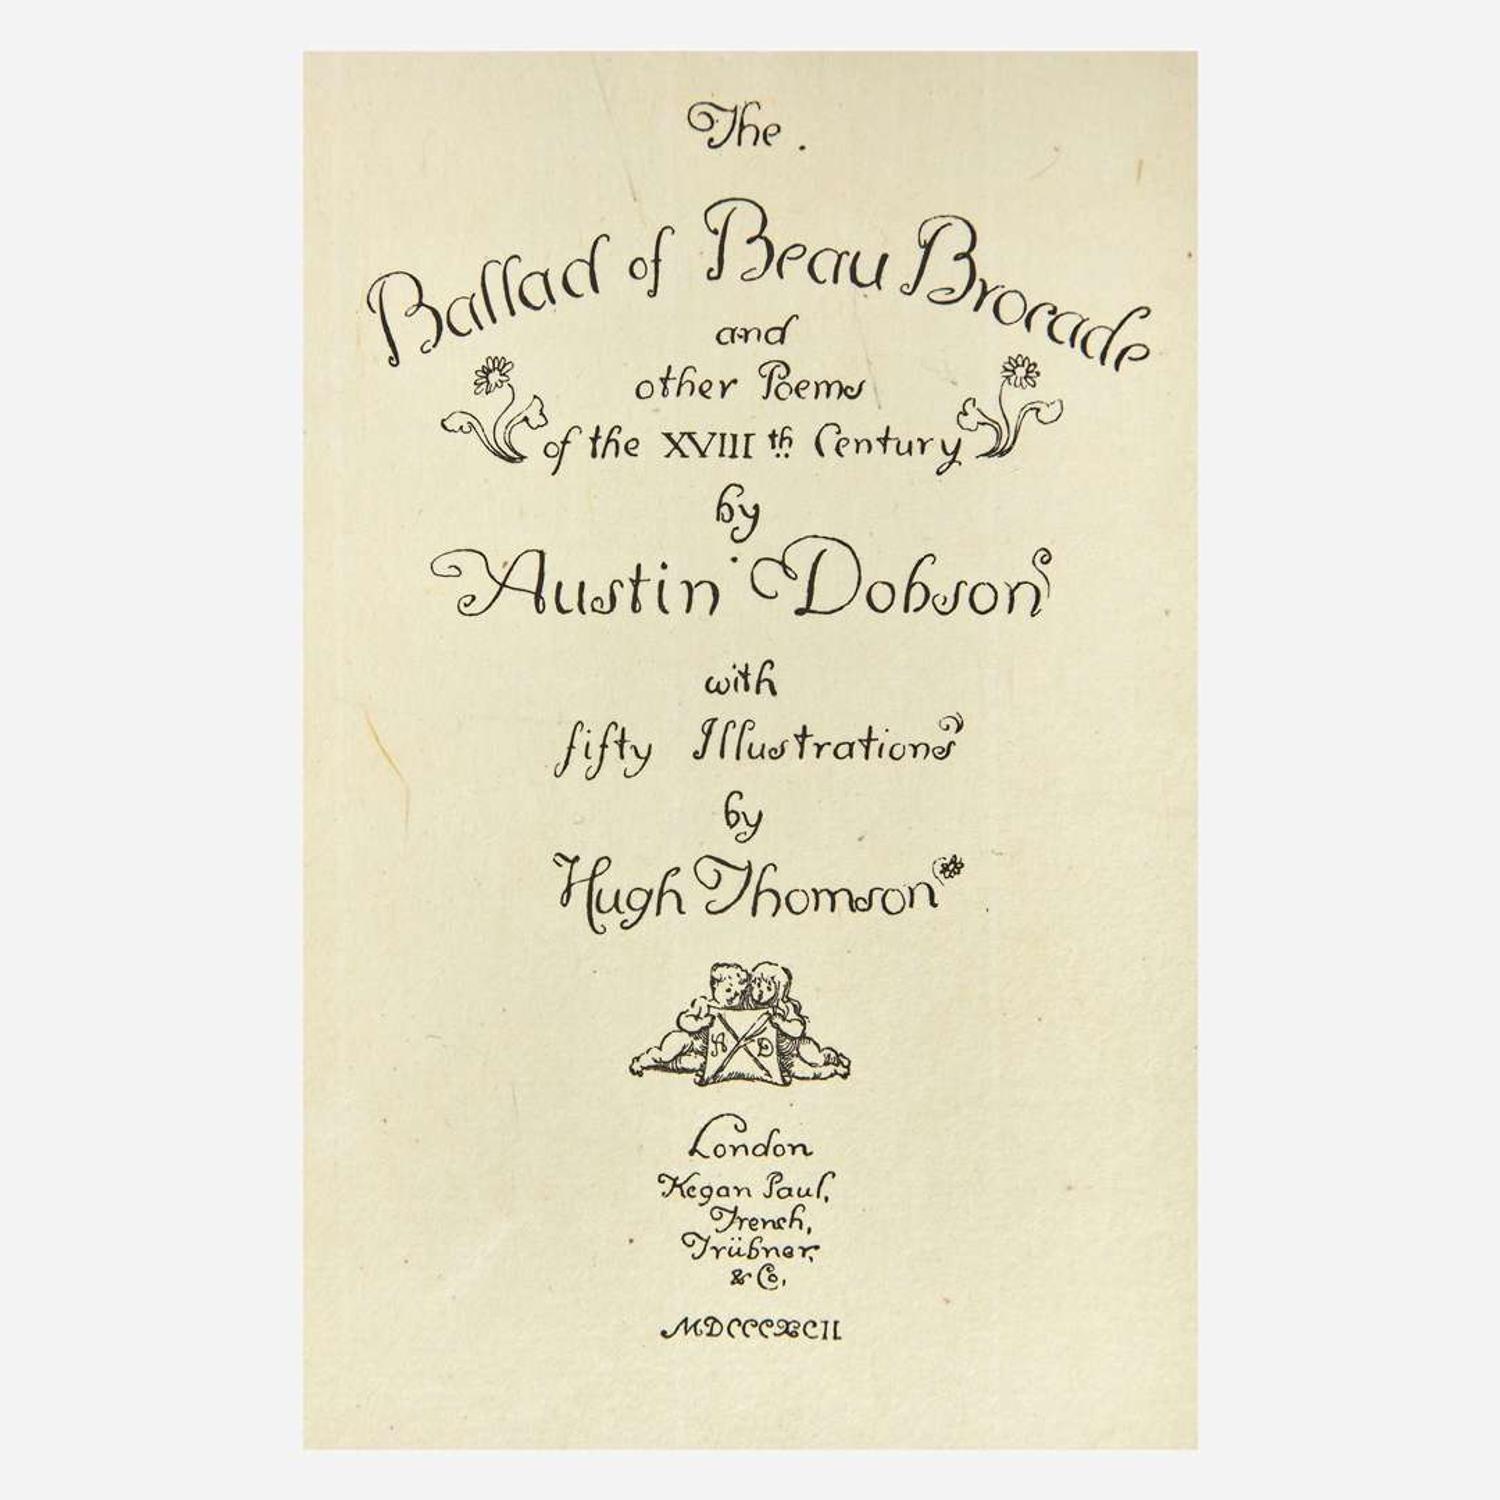 The
Ballad of Beau Brocade
and
other Poems
of the XVIII th Century
by
Austin Dobson
with
fifty Illustrations
by
Hugh Thomson
A D
London
Kegan Paul,
Trench,
Trübner,
& Co,
MDCCCXCII